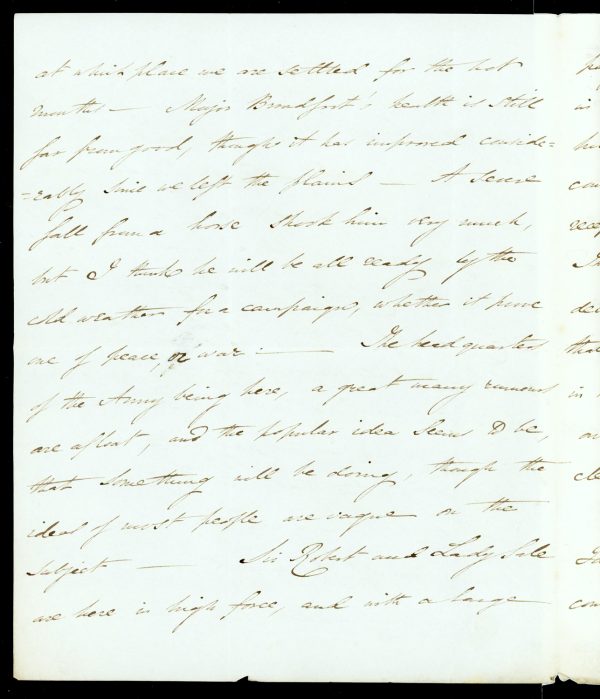 at which place we are settled for the hot
months — Major Broadfoot's health is still
far from good, though it has improved conside=
=rably since we left the plains — A severe
fall from a horse shook him very much,
but I think he will be all ready by the
cold weather for a campaign, whether it prove
one of peace, or war — The head quarters
of the Army being here, a great many rumours
are afloat, and the popular idea seems to be,
that something will be doing, though the
ideas of most people are vague on the
subject — Sir Robert and Lady Sale
are here in high force, and with a large